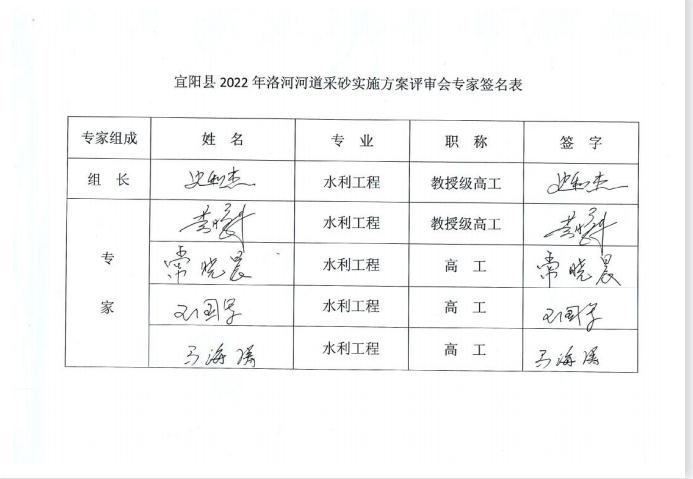 宜阳县 2022 年洛河河道采砂实施方案评审会专家签名表
专家组成 姓 名 专 业 职 称 签 字
组 长 史和杰 水利工程 教授级高工 史和杰
水利工程 教授级高工
专 常晓晨 水利工程 高 工 常晓晨
家 水利工程 高 工
马海瑛 水利工程 高 工 马海瑛